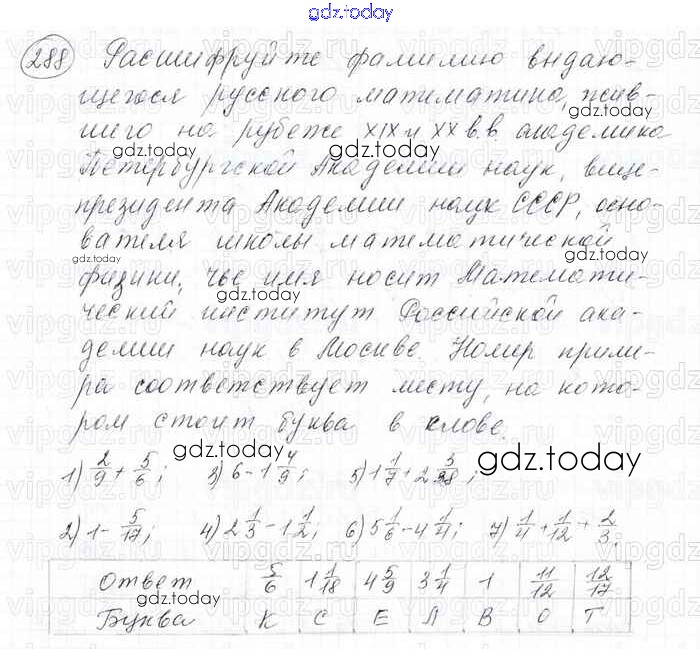 gdz.today
288 Расшифруйте фамилию выдаю-
щегося русского математика, жив-
шего на рубеже XIX и XX в.в. академика
Петербургской Академии наук, вице-
президента Академии наук СССР, осно-
вателя школы математической
физики, чьё имя носит Математи-
ческий институт Российской ака-
демии наук в Москве. Номер приме-
ра соответствует месту, на кото-
ром стоит буква в слове.
1) 2/9 + 5/6; 3) 6 - 1 4/9; 5) 1 1/7 + 2 3/28;
2) 1 - 5/17; 4) 2 1/3 - 1 1/2; 6) 5 1/6 - 4 1/4; 7) 1/4 + 1/12 + 2/3.
Ответ 5/6 1 1/18 4 5/9 3 1/4 1 11/12 12/17
Буква К С Е Л В О Т